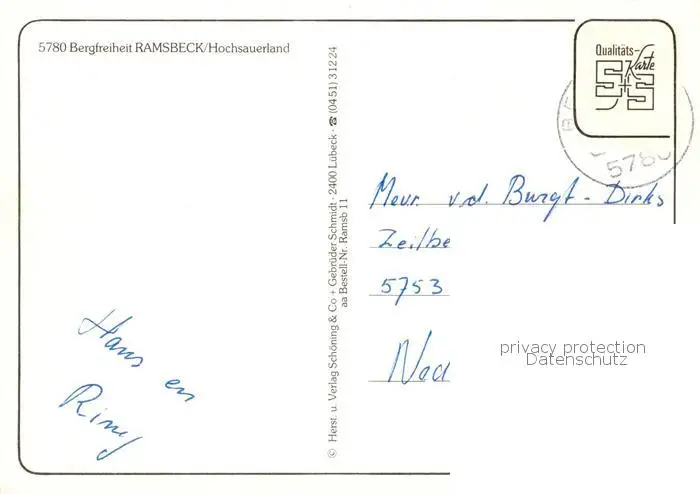 5780 Bergfreiheit RAMSBECK/Hochsauerland
Qualitäts-
Karte
S+S
5780
© Herst. u. Verlag Schöning & Co + Gebrüder Schmidt · 2400 Lübeck · ☎ (0451) 31224
aa Bestell-Nr. Ramsb 11
Mevr. v.d. Burgt - Dirks
Zeilbe
5753
Ned
Hans en
Riny
privacy protection
Datenschutz